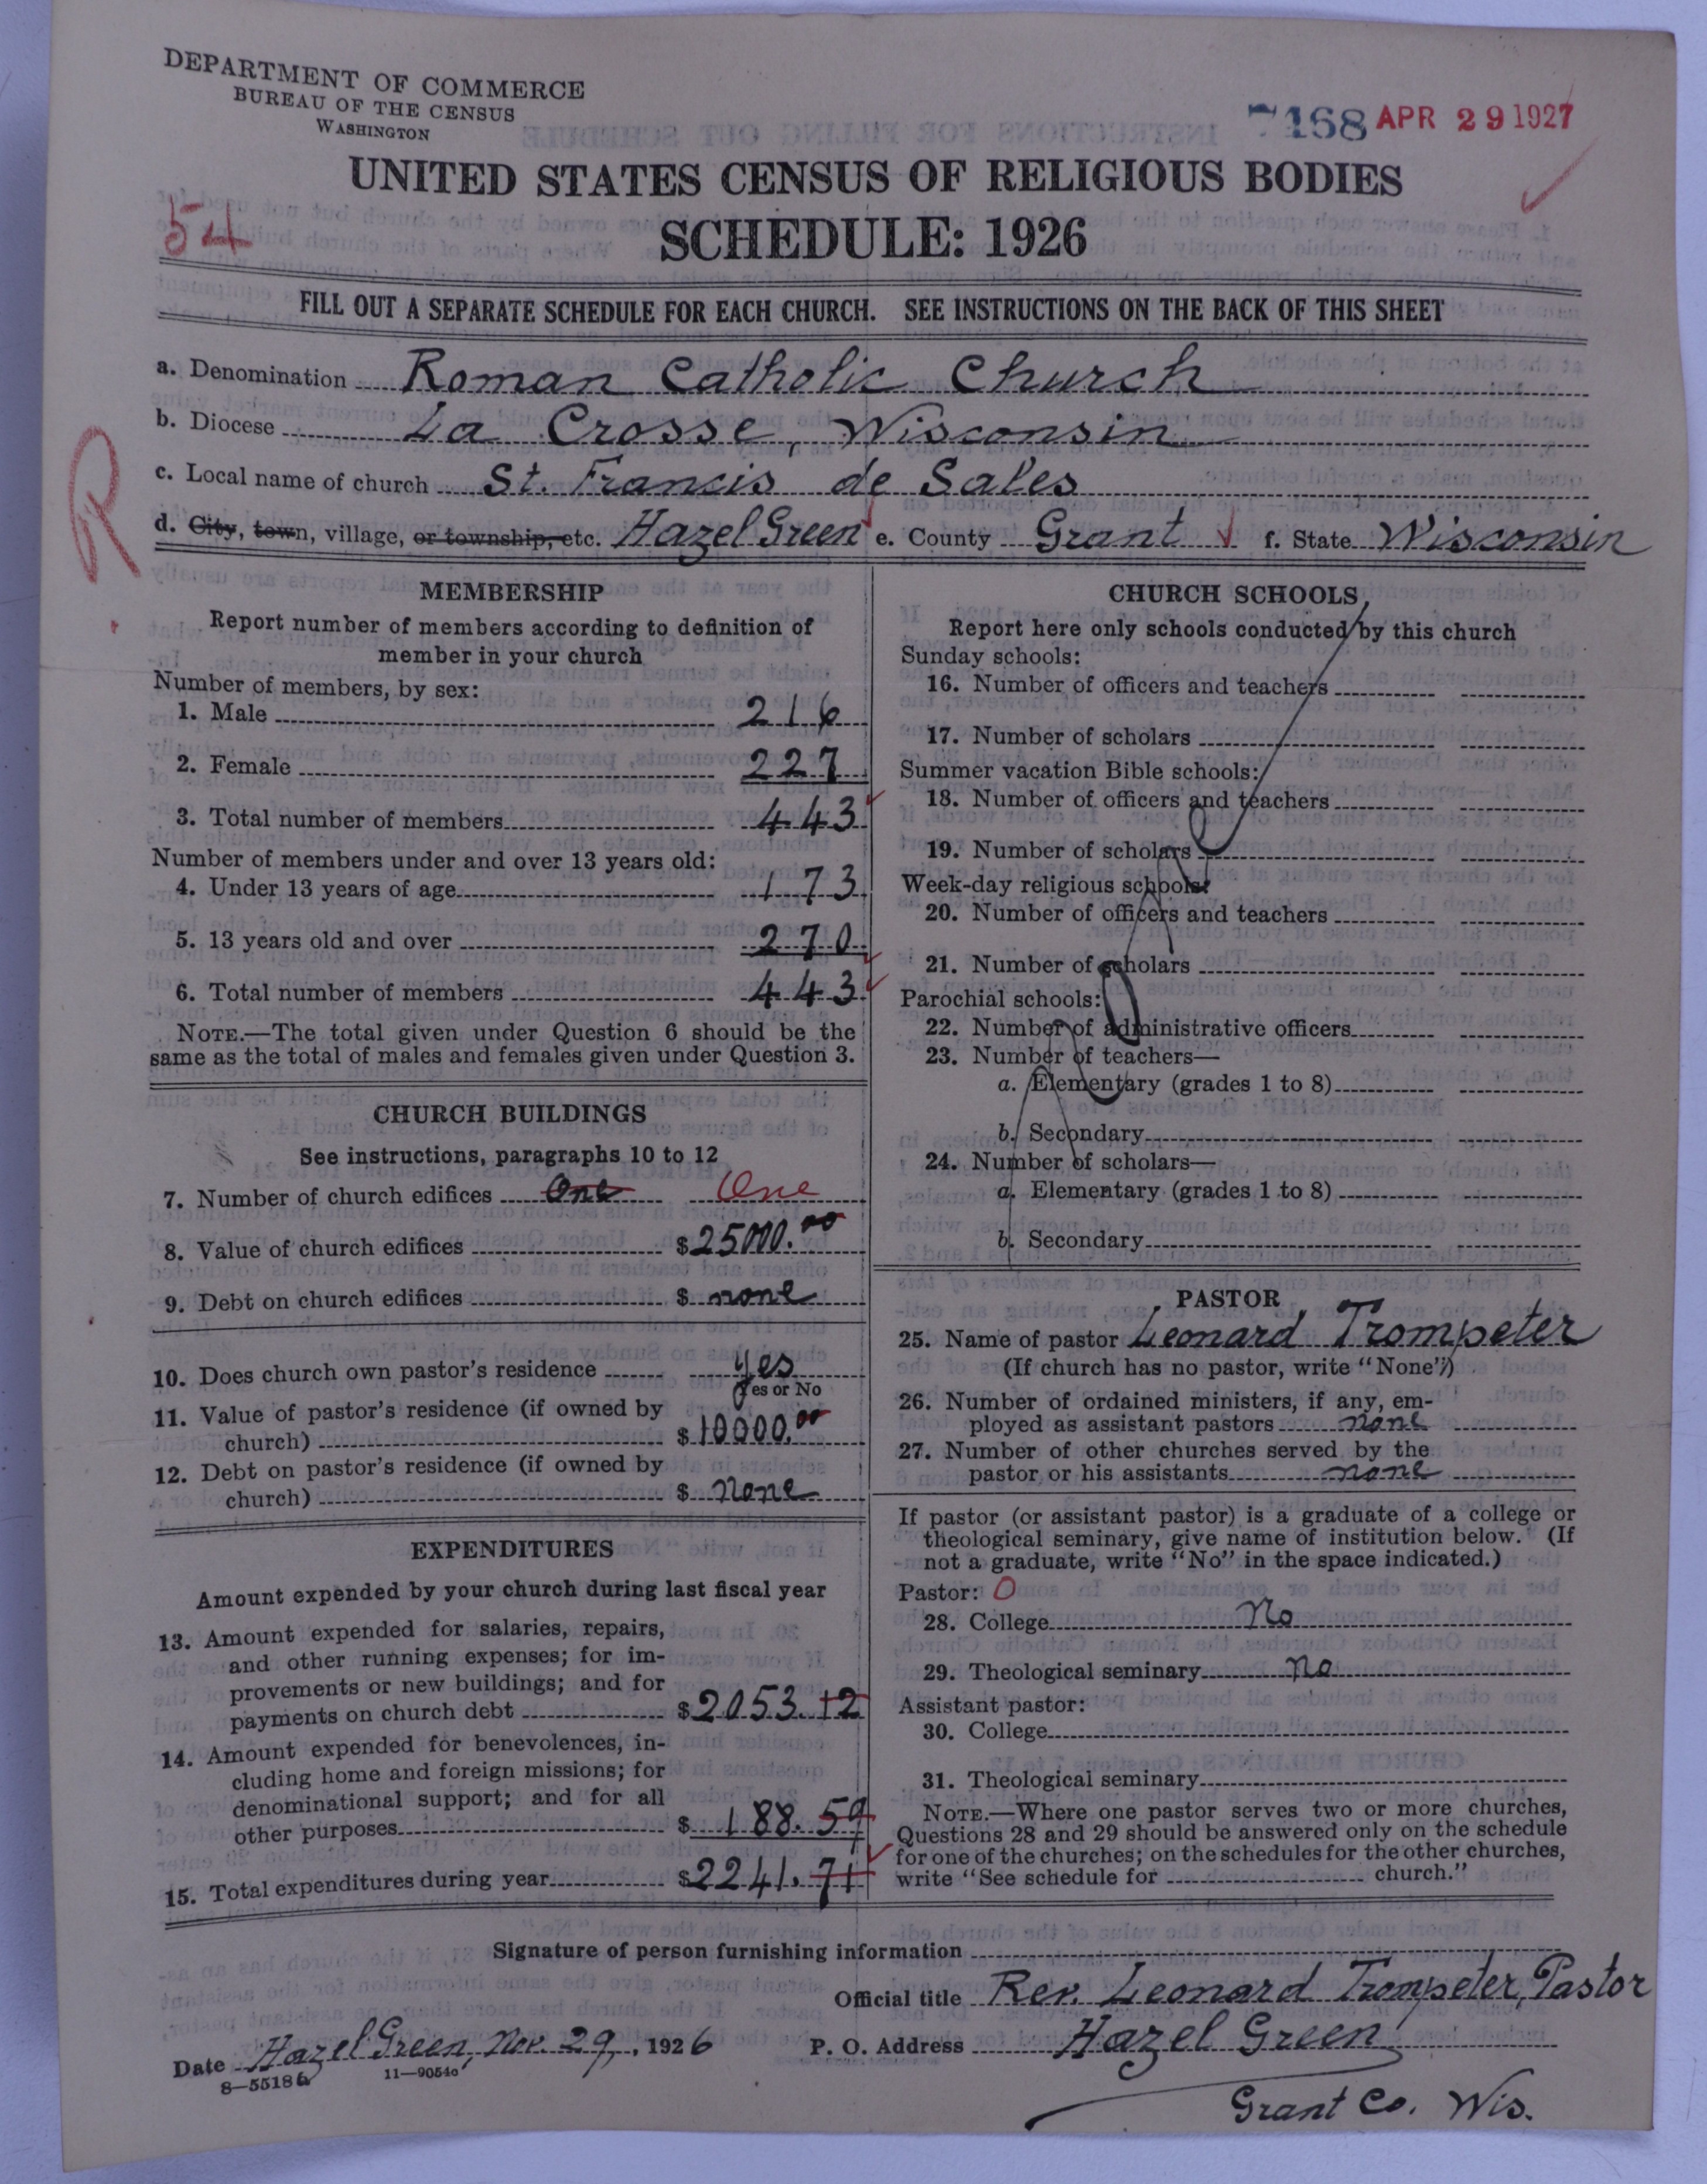 DEPARTMENT OF COMMERCE
BUREAU OF THE CENSUS
WASHINGTON
7168 APR 29 1927
UNITED STATES CENSUS OF RELIGIOUS BODIES
54
SCHEDULE: 1926
FILL OUT A SEPARATE SCHEDULE FOR EACH CHURCH. SEE INSTRUCTIONS ON THE BACK OF THIS SHEET
a. Denomination Roman Catholic Church
b. Diocese La Crosse, Wisconsin
R
c. Local name of church St. Francis de Sales
d. City, town, village, or township, etc. Hazel Green e. County Grant f. State Wisconsin
MEMBERSHIP
Report number of members according to definition of
member in your church
Number of members, by sex:
1. Male 216
2. Female 227
3. Total number of members 443
Number of members under and over 13 years old:
4. Under 13 years of age 173
5. 13 years old and over 270
6. Total number of members 443
NOTE.—The total given under Question 6 should be the
same as the total of males and females given under Question 3.
CHURCH BUILDINGS
See instructions, paragraphs 10 to 12
7. Number of church edifices One One
8. Value of church edifices $25000.00
9. Debt on church edifices $ none
10. Does church own pastor's residence yes
Yes or No
11. Value of pastor's residence (if owned by
church) $10000.00
12. Debt on pastor's residence (if owned by
church) $ none
EXPENDITURES
Amount expended by your church during last fiscal year
13. Amount expended for salaries, repairs,
and other running expenses; for im-
provements or new buildings; and for
payments on church debt $2053.12
14. Amount expended for benevolences, in-
cluding home and foreign missions; for
denominational support; and for all
other purposes $ 188.59
15. Total expenditures during year $2241.71
CHURCH SCHOOLS
Report here only schools conducted by this church
Sunday schools:
16. Number of officers and teachers
17. Number of scholars
Summer vacation Bible schools:
18. Number of officers and teachers
19. Number of scholars
Week-day religious schools:
20. Number of officers and teachers
21. Number of scholars
Parochial schools:
22. Number of administrative officers
23. Number of teachers—
a. Elementary (grades 1 to 8)
b. Secondary
24. Number of scholars—
a. Elementary (grades 1 to 8)
b. Secondary
PASTOR
25. Name of pastor Leonard Trompeter
(If church has no pastor, write "None")
26. Number of ordained ministers, if any, em-
ployed as assistant pastors none
27. Number of other churches served by the
pastor or his assistants none
If pastor (or assistant pastor) is a graduate of a college or
theological seminary, give name of institution below. (If
not a graduate, write "No" in the space indicated.)
Pastor: O
28. College No
29. Theological seminary no
Assistant pastor:
30. College
31. Theological seminary
NOTE.—Where one pastor serves two or more churches,
Questions 28 and 29 should be answered only on the schedule
for one of the churches; on the schedules for the other churches,
write "See schedule for church."
Signature of person furnishing information
Official title Rev. Leonard Trompeter, Pastor
Date Hazel Green, Nov. 29, 1926 P. O. Address Hazel Green
8—5518b 11—9054c
Grant Co. Wis.